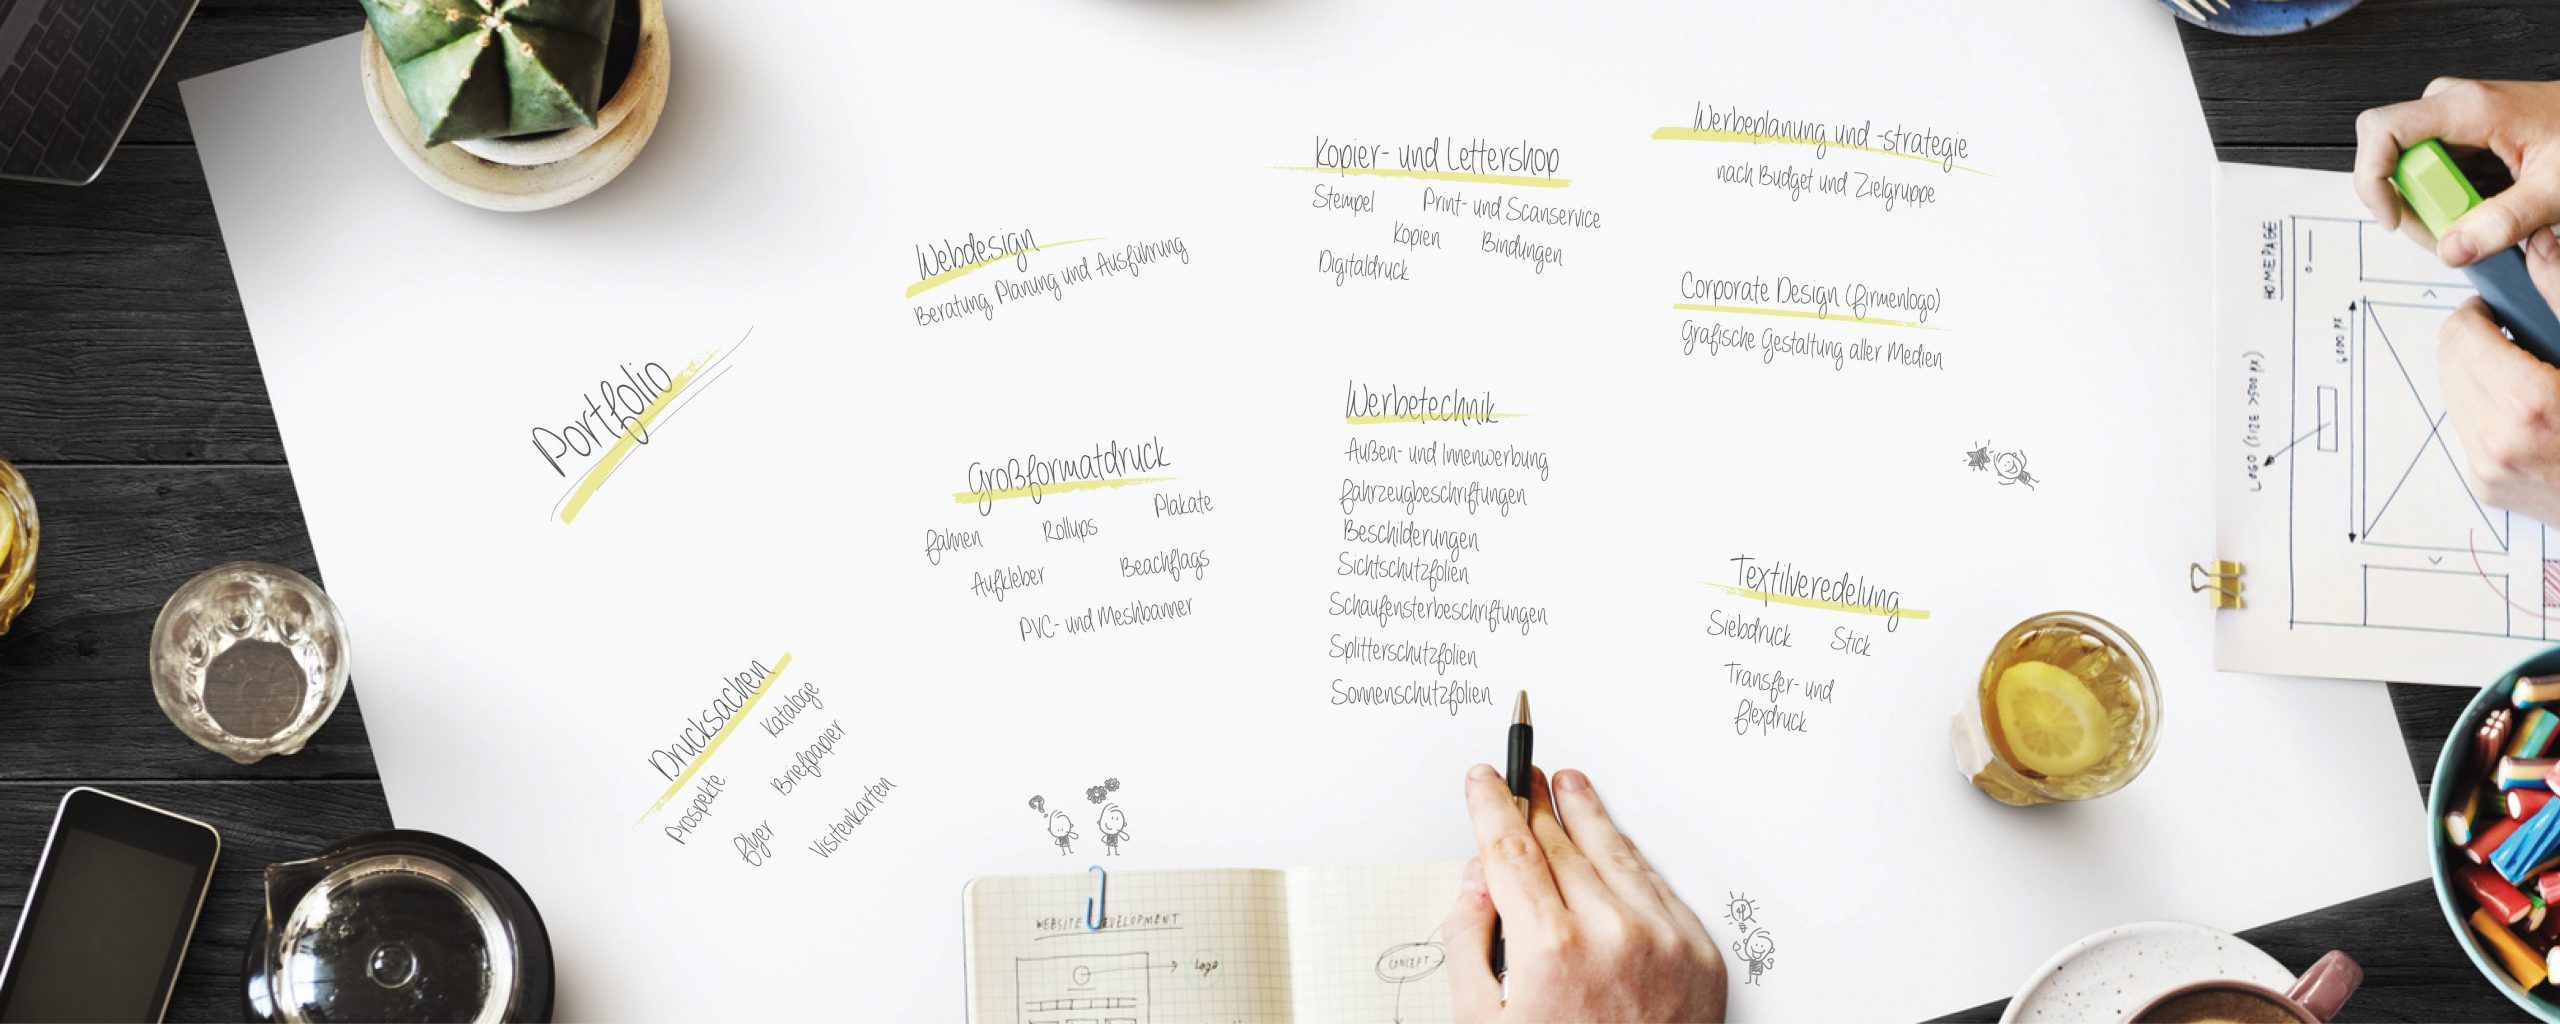 Portfolio
Webdesign
Beratung, Planung und Ausführung
Kopier- und Lettershop
Stempel Print- und Scanservice
Kopien Bindungen
Digitaldruck
Werbeplanung und -strategie
nach Budget und Zielgruppe
Corporate Design (Firmenlogo)
Grafische Gestaltung aller Medien
Großformatdruck
Fahnen Rollups Plakate
Aufkleber Beachflags
PVC- und Meshbanner
Werbetechnik
Außen- und Innenwerbung
Fahrzeugbeschriftungen
Beschilderungen
Sichtschutzfolien
Schaufensterbeschriftungen
Splitterschutzfolien
Sonnenschutzfolien
Textilveredelung
Siebdruck Stick
Transfer- und
Flexdruck
Drucksachen
Prospekte Kataloge
Flyer Briefpapier
Visitenkarten
HOMEPAGE
LOGO (SIZE >500 PX)
WEBSITE DEVELOPMENT
Logo
CONCEPT